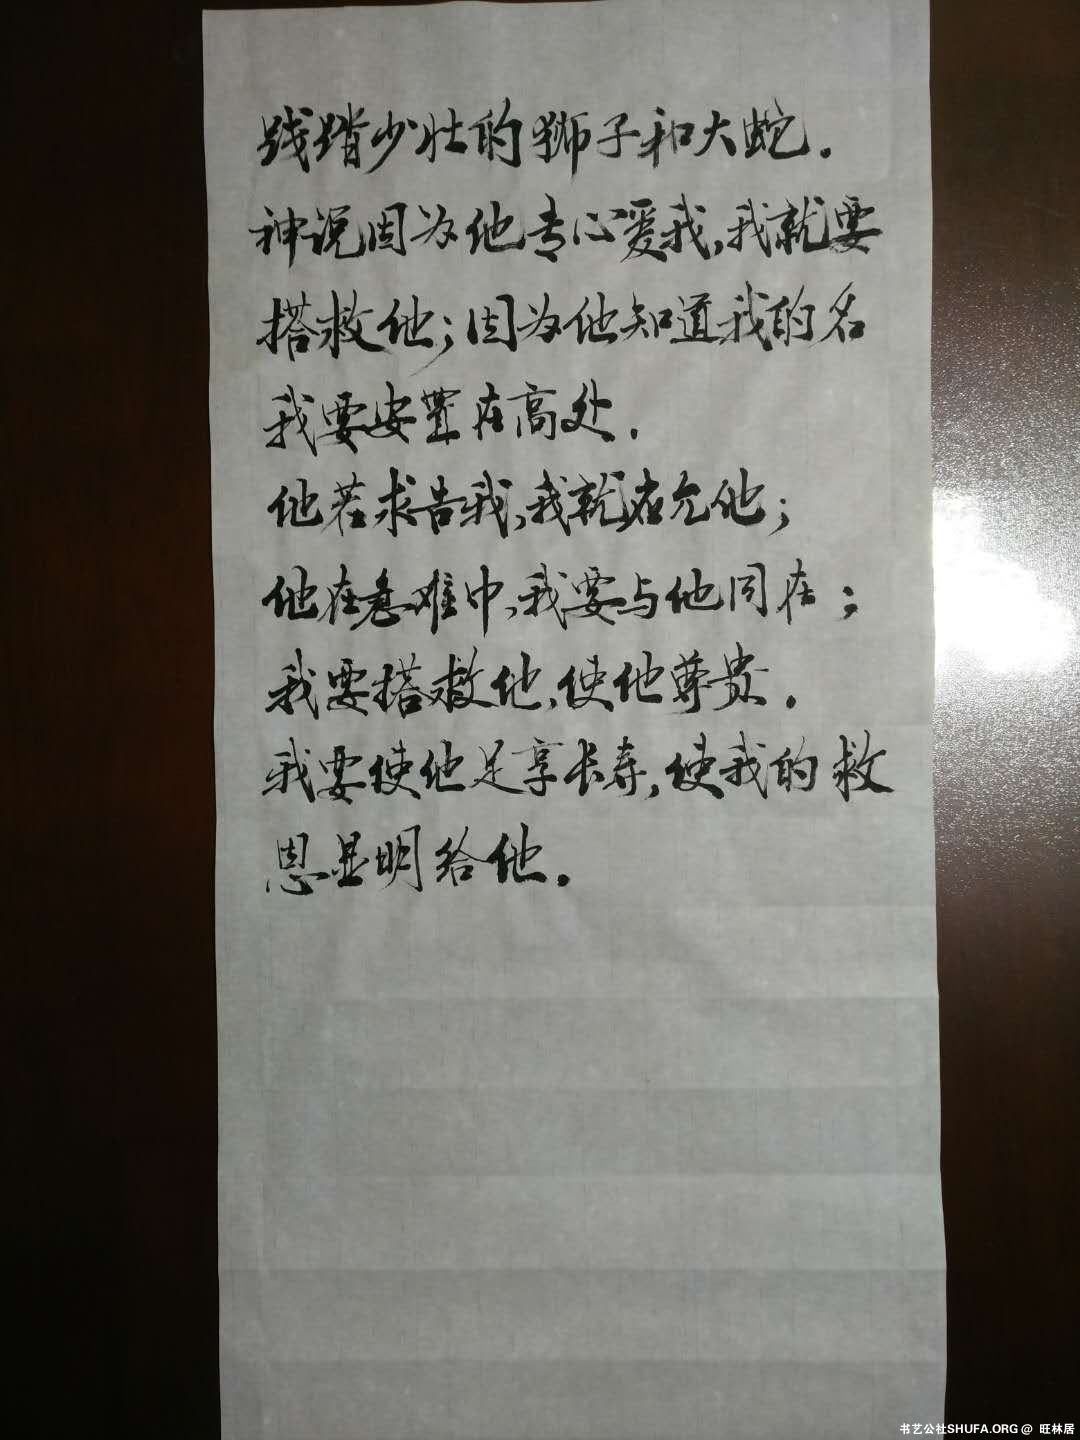 践踏少壮的狮子和大蛇.
神说因为他专心爱我,我就要
搭救他;因为他知道我的名
我要安置在高处.
他若求告我,我就应允他;
他在急难中,我要与他同在;
我要搭救他,使他尊贵.
我要使他足享长寿,使我的救
恩显明给他.
书艺公社SHUFA.ORG @ 旺林居